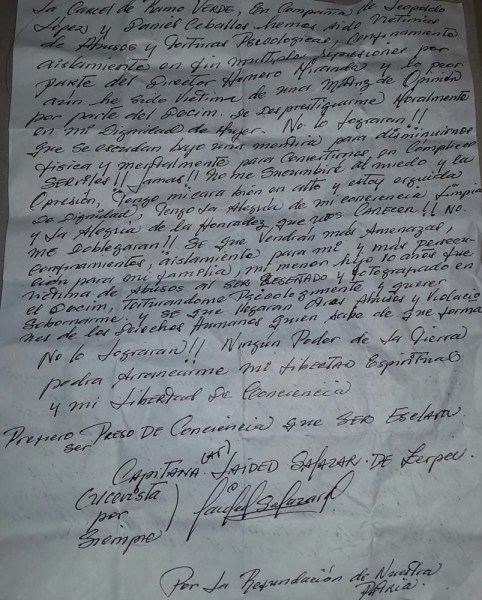 La Carcel de Ramo VERDE, En Compañia de Leopoldo
López y Daniel Ceballos hemos sido Victimas
de Abusos y Torturas Psicologicas, Confinamiento
aislamiento en fin multiples represiones por
parte del Director Homero Miranda y lo peor
aún he sido Victima de una Matriz de Opinión
por parte del Dgcim. de desprestigiarme Moralmente
en mi Dignidad de Mujer. No lo lograran!!
Que se escudan bajo una mentira para disminuirnos
fisica y mentalmente para Convertirnos en Complices
SERVILES!! Jamas!! No me Sucumbirá al miedo y la
Opresión, Tengo mi cara bien en alto y estoy erguida
de Dignidad, Tengo La Alegria de mi conciencia Limpia
y La Alegria de la Honradez que uds CARECEN!! NO.
ME Doblegaran!! SE que Vendrán más Amenazas,
confinamientos, aislamiento para mi y más persecu-
ción para mi familia, mi menor hijo 10 años fue
victima de Abusos al SER RESEÑADO y fotografiado en
el Dgcim, Torturandome Psicologicamente y querer
Sobornarme. y SE que llegaran Otros Abusos y Violacio
nes de los Derechos Humanos quien sabe de que forma
No lo lograran!! Ningún Poder de la Tierra
podra Arrancarme mi Libertad Espiritual
y mi Libertad de Conciencia
Prefiero ser PRESO DE Conciencia que SER Esclava.
Capitana (AV) LAIDED SALAZAR. DE Zerpa.
(Ucevista
por
Siempre)
Laided Salazar
Por La Refundación de Nuestra
PATRIA.